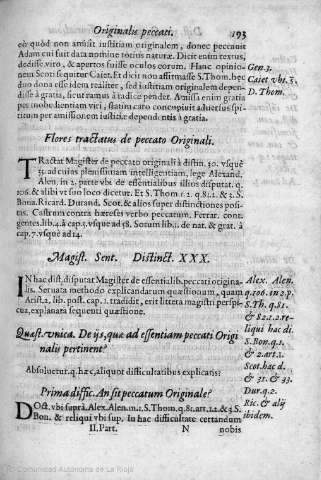 Originalis peccati. 193
eò quòd non amisit iustitiam originalem, donec peccauit
Adam cui fuit data nomine totius naturæ. Dicit enim textus,
dedisse viro, & apertos fuisse oculos eorum. Hanc opinio-
nem Scoti sequitur Caiet. Et dicit non affirmasse S. Thom. hęc
duo dona esse idem realiter, sed iustitiam originalem depen-
disse à gratia, sicut ramus à radice pendet. Amissa enim gratia
per inobedientiam viri, statim caro concupiuit aduersus spi-
ritum per amissionem iustitiæ dependentis à gratia.
Gen. 3.
Caiet vbi. s.
D. Thom.
Flores tractatus de peccato Originali.
TRactat Magister de peccato originali à distin. 30. vsquè
35. ad cuius plenissimam intelligentiam, lege Alexand.
Alen. in 2. parte vbi de essentialibus illius disputat. q.
106. & alibi vt suo loco dicetur. Et S. Thom. 1. 2. q. 81. 2. & 3. S.
Bona. Ricard. Durand. Scot. & alios super distinctiones pos-
tris. Castrum contra hæreses verbo peccatum. Ferrar. cont.
gentes. lib. 4. à cap. 5. vsque ad 58. Sotum lib. 1. de nat. & grat. à
cap. 7. vsque ad 14.
Magist. Sent. Distinct. XXX.
IN hac dist. disputat Magister de essentialib. peccati origina-
lis. Seruata methodo explicandarum quæstionum, quam
Arist. 2. lib. post. cap. 1. tradidit, erit littera magistri perspi-
cua, explanata sequenti quæstione.
Quæst. vnica. De ijs, quæ ad essentiam peccati Origi
nalis pertinent?
Absoluetur. q. hæc, aliquot difficultatibus explicatis:
Prima diffic. An sit peccatum Originale?
DOct. vbi suprà, Alex. Alen. m. 1. S. Thom. q. 81. art. 1. 2. & 3. S.
Bon. & reliqui vbi sup. In hac difficultate certandum
II. Part. N nobis
Alex. Alen.
q. 106. in 2. p.
S. Th. q. 81.
& 82. 1. 2. re-
liqui hac di.
S. Bon. q. 1.
& 2. art. 1.
Scot. hac d.
& 31. & 33.
Dur. q. 2.
Ric. & alij
ibidem.
(C) Comunidad Autónoma de La Rioja